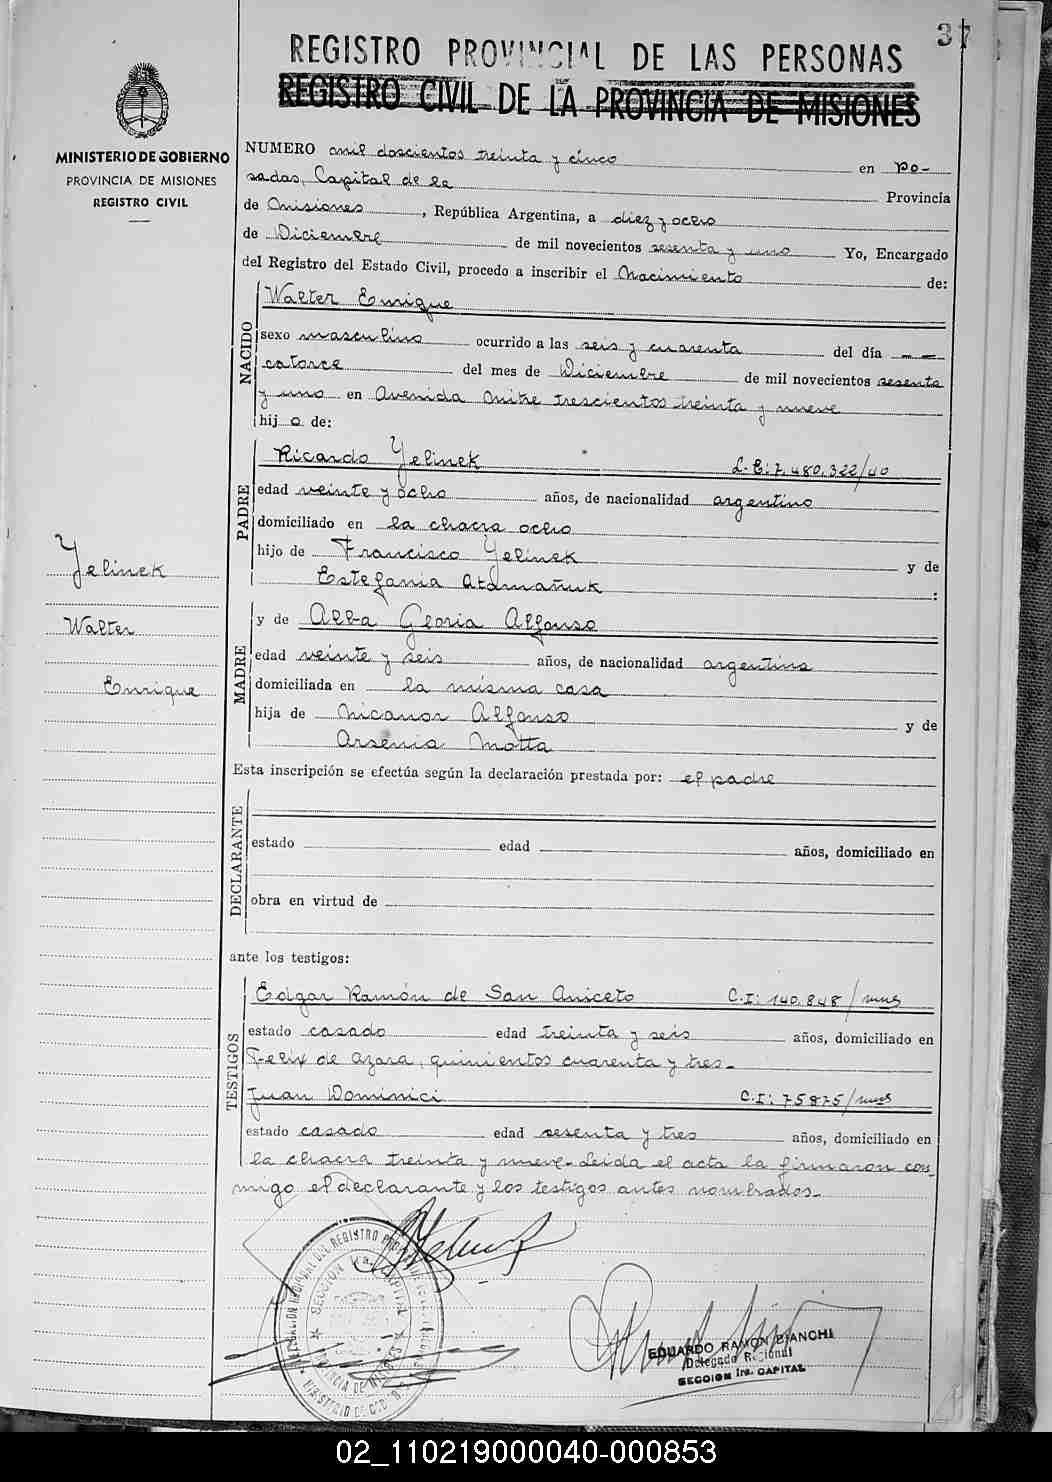 37
REGISTRO PROVINCIAL DE LAS PERSONAS
REGISTRO CIVIL DE LA PROVINCIA DE MISIONES
MINISTERIO DE GOBIERNO
PROVINCIA DE MISIONES
REGISTRO CIVIL
NUMERO mil doscientos treinta y cinco en Po-
sadas, Capital de la Provincia
de Misiones, República Argentina, a diez y ocho
de Diciembre de mil novecientos sesenta y uno Yo, Encargado
del Registro del Estado Civil, procedo a inscribir el Nacimiento de:
NACIDO
Walter Enrique
sexo masculino ocurrido a las seis y cuarenta del día
catorce del mes de Diciembre de mil novecientos sesenta
y uno en Avenida Mitre trescientos treinta y nueve
hijo de:
PADRE
Ricardo Yelinek L.E: 7.480.322/40
edad veinte y ocho años, de nacionalidad argentino
domiciliado en la chacra ocho
hijo de Francisco Yelinek y de
Estefania Atamañuk :
MADRE
y de Alba Gloria Alfonso
edad veinte y seis años, de nacionalidad argentina
domiciliada en la misma casa
hija de Nicanor Alfonso y de
Arsenia Motta
Yelinek
Walter
Enrique
Esta inscripción se efectúa según la declaración prestada por: el padre
DECLARANTE
estado edad años, domiciliado en
obra en virtud de
ante los testigos:
TESTIGOS
Edgar Ramón de San Aniceto C.I: 140.848/mnes
estado casado edad treinta y seis años, domiciliado en
Felix de Azara, quinientos cuarenta y tres-
Juan Dominici C.I: 75875/mnes
estado casado edad sesenta y tres años, domiciliado en
la chacra treinta y nueve-Leida el acta la firmaron con-
migo el declarante y los testigos antes nombrados-
SECCION 1ra. CAPITAL
EDUARDO RAMON BIANCHI
Delegado Regional
SECCION 1ra. CAPITAL
02_110219000040-000853